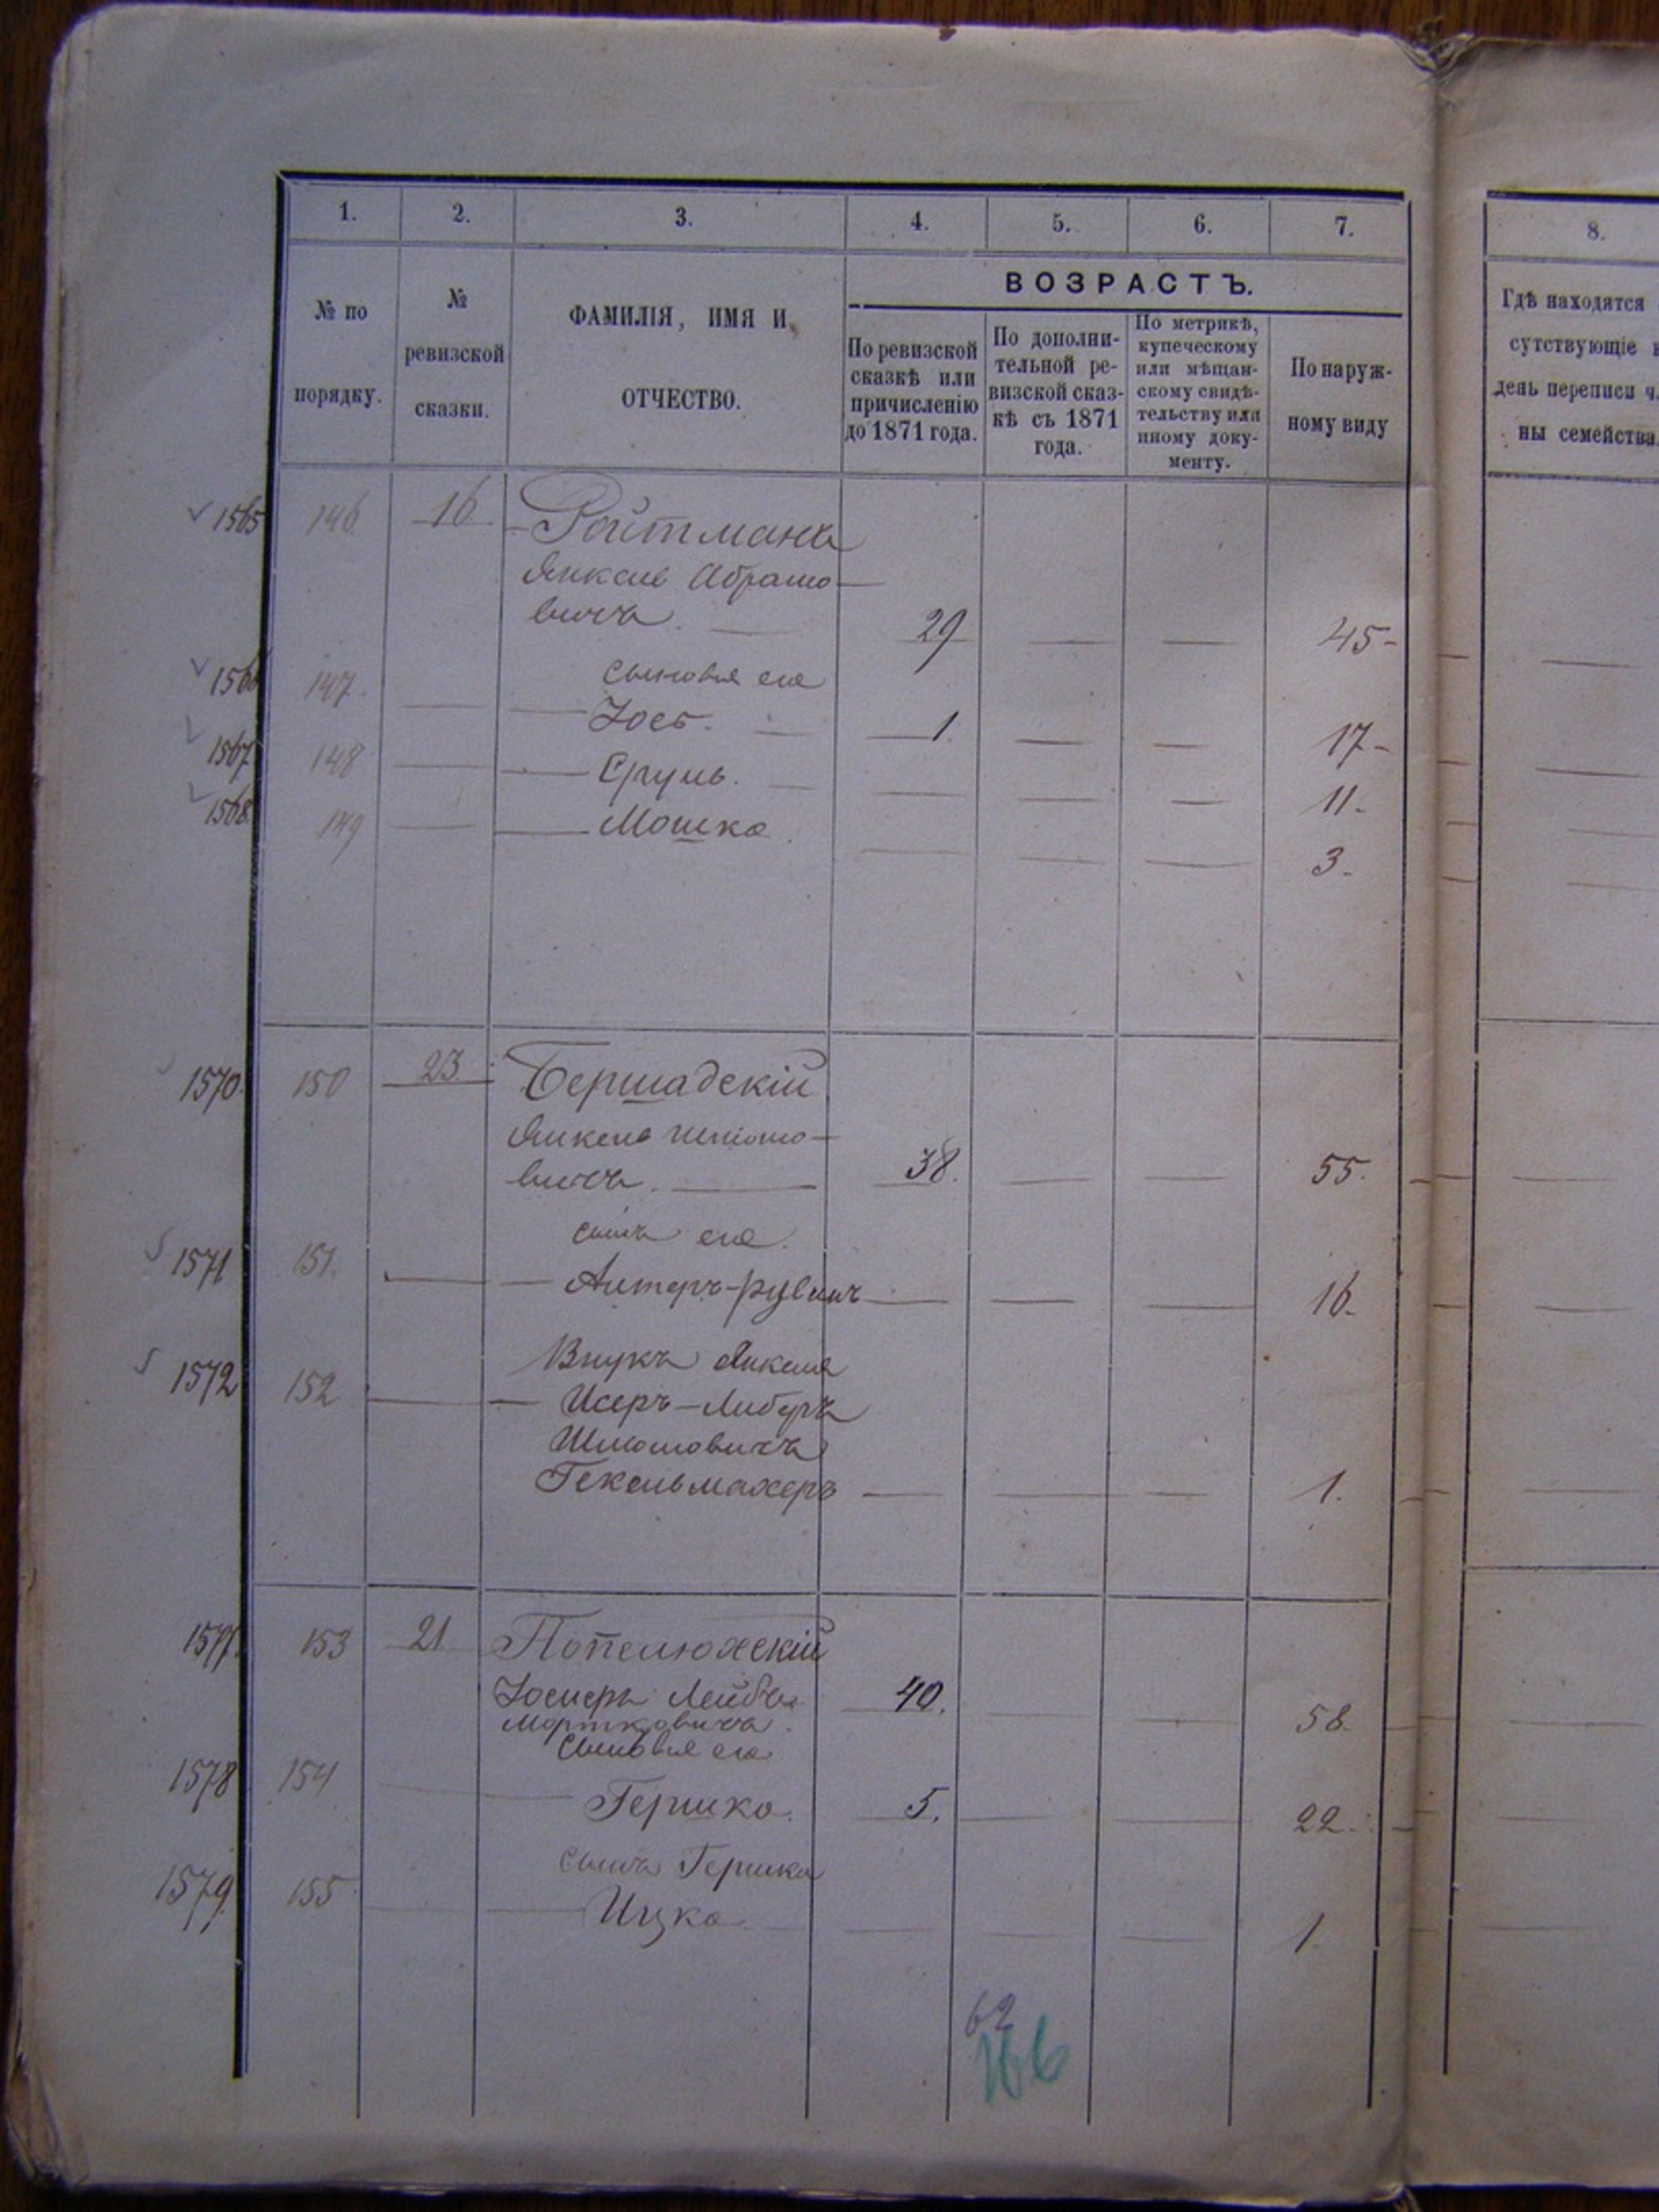 1. 2. 3. 4. 5. 6. 7.
8.
№ по
порядку.
№
ревизской
сказки.
ФАМИЛІЯ, ИМЯ И
ОТЧЕСТВО.
ВОЗРАСТЪ.
По ревизской
сказкѣ или
причисленію
до 1871 года.
По дополни-
тельной ре-
визской сказ-
кѣ съ 1871
года.
По метрикѣ,
купеческому
или мѣщан-
скому свидѣ-
тельству или
иному доку-
менту.
По наруж-
ному виду
Гдѣ находятся
сутствующіе
день переписи
ны семейства
1565 146 16 Ройтманъ
Янкель Абрамо-
вичъ. 29 45
Сыновья его
1566 147. Іось. 1. 17
1567 148 Сруль. 11
1568. 149 Мошко. 3
1570. 150 23. Бершадскій
Янкель Шліомо-
вичъ. 38. 55.
сынъ его.
1571 151. Антеръ-рувинъ 16
Внукъ Янкеля
1572 152 Исеръ-Либеръ
Шліомовичъ
Гекельмахеръ 1.
1577. 153 21 Попелюхскій
Лейбъ 40. 58
Мортковичъ.
Сыновья его
1578 154 Гершко. 5. 22
Сынъ Гершка
1579. 155 Ицко. 1.
62
166